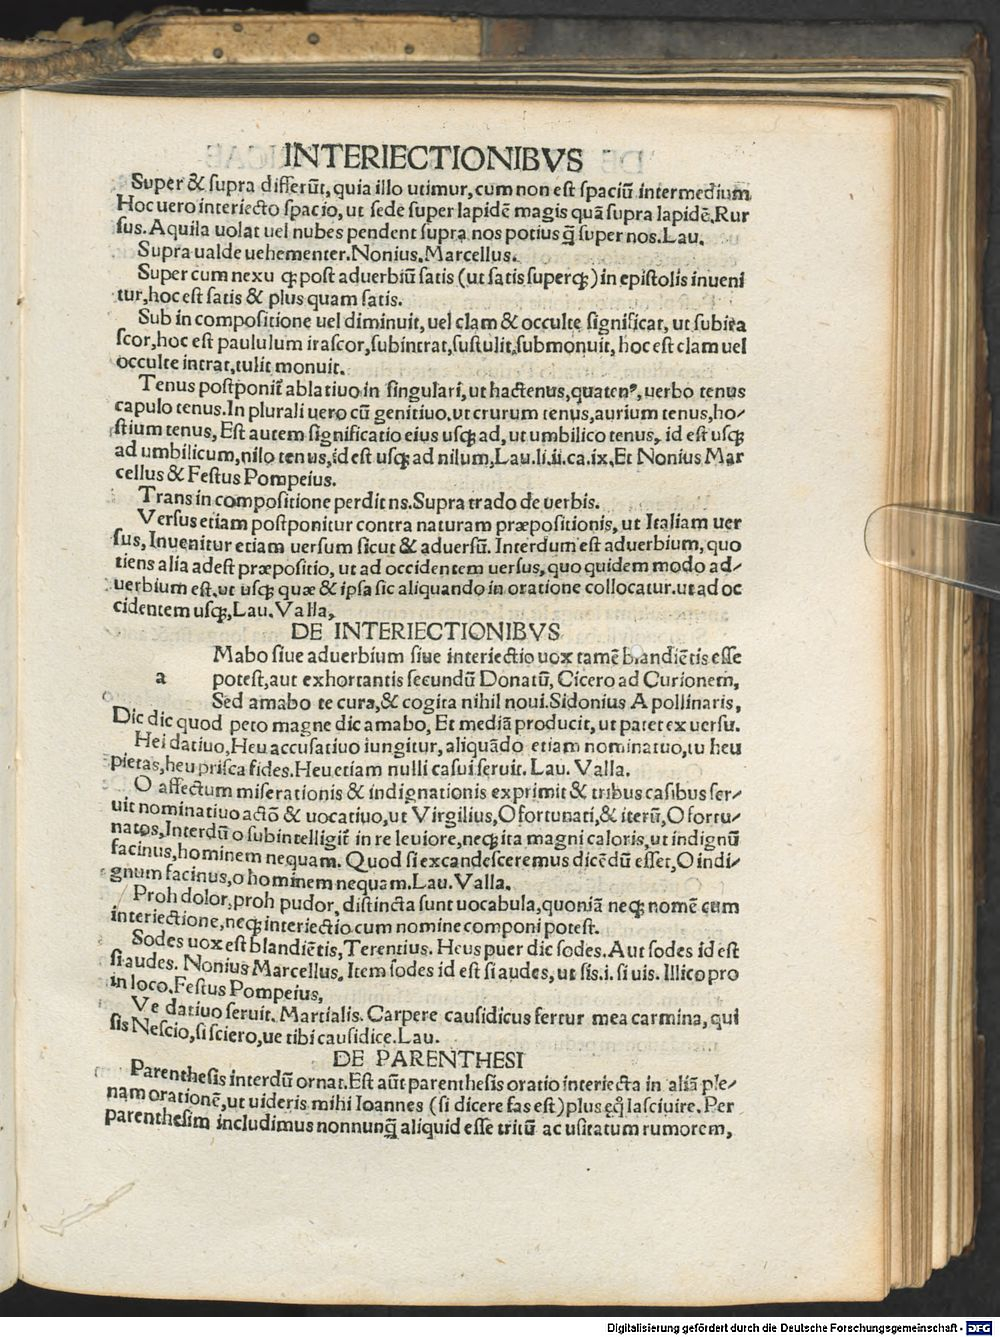 INTERIECTIONIBVS
Super & supra differūt, quia illo utimur, cum non est spaciū intermedium
Hoc uero interiecto spacio, ut sede super lapidē magis quā supra lapidē. Rur
sus. Aquila uolat uel nubes pendent supra nos potius q̄ super nos. Lau.
Supra ualde uehementer. Nonius. Marcellus.
Super cum nexu qꝫ post aduerbiū satis (ut satis superqꝫ) in epistolis inueni
tur, hoc est satis & plus quam satis.
Sub in compositione uel diminuit, uel clam & occulte significat, ut subira
scor, hoc est paululum irascor, subintrat, sustulit, submonuit, hoc est clam uel
occulte intrat, tulit monuit.
Tenus postponit̄ ablatiuo in singulari, ut hactenus, quatenꝰ, uerbo tenus
capulo tenus. In plurali uero cū genitiuo. ut crurum tenus, aurium tenus, ho⸗
stium tenus, Est autem significatio eius usqꝫ ad, ut umbilico tenus, id est usqꝫ
ad umbilicum, nilo tenus, id est usqꝫ ad nilum, Lau. li. ii. ca. ix. Et Nonius Mar
cellus & Festus Pompeius.
Trans in compositione perdit ns. Supra trado de uerbis.
Versus etiam postponitur contra naturam præpositionis, ut Italiam uer
sus, Inuenitur etiam uersum sicut & aduersū. Interdum est aduerbium, quo
tiens alia adest præpositio, ut ad occidentem uersus, quo quidem modo ad⸗
uerbium est. ut usqꝫ quæ & ipsa sic aliquando in oratione collocatur. ut ad oc
cidentem usqꝫ, Lau. Valla,
DE INTERIECTIONIBVS
Mabo siue aduerbium siue interiectio uox tamē blandiētis esse
a potest, aut exhortantis secundū Donatū, Cicero ad Curionem,
Sed amabo te cura, & cogita nihil noui. Sidonius Apollinaris,
Dic dic quod peto magne dic amabo, Et mediā producit, ut patet ex uersu.
Hei datiuo, Heu accusatiuo iungitur, aliquādo etiam nominatuo, tu heu
pietas, heu prisca fides. Heu etiam nulli casui seruit. Lau. Valla.
O affectum miserationis & indignationis exprimit & tribus casibus ser⸗
uit nominatiuo actō & uocatiuo, ut Virgilius, O fortunati, & iterū, O fortu⸗
natos, Interdū o subintelligit̄ in re leuiore, neqꝫ ita magni caloris, ut indignū
facinus, hominem nequam. Quod si excandesceremus dicēdū esset, O indi⸗
gnum facinus, o hominem nequam. Lau. Valla.
Proh dolor, proh pudor, distincta sunt uocabula, quoniā neqꝫ nomē cum
interiectione, neqꝫ interiectio cum nomine componi potest.
Sodes uox est blandiētis, Terentius. Heus puer dic sodes. Aut sodes id est
si audes. Nonius Marcellus. Item sodes id est si audes, ut sis .i. si uis. Illico pro
in loco. Festus Pompeius,
Ve datiuo seruit. Martialis. Carpere causidicus fertur mea carmina, qui
sis Nescio, si sciero, ue tibi causidice. Lau.
DE PARENTHESI
Parenthesis interdū ornat. Est aūt parenthesis oratio interiecta in aliā ple⸗
nam orationē, ut uideris mihi Ioannes (si dicere fas est) plus eq̊ lasciuire. Per
parenthesim includimus nonnunq̄ aliquid esse tritū ac usitatum rumorem,
Digitalisierung gefördert durch die Deutsche Forschungsgemeinschaft - DFG